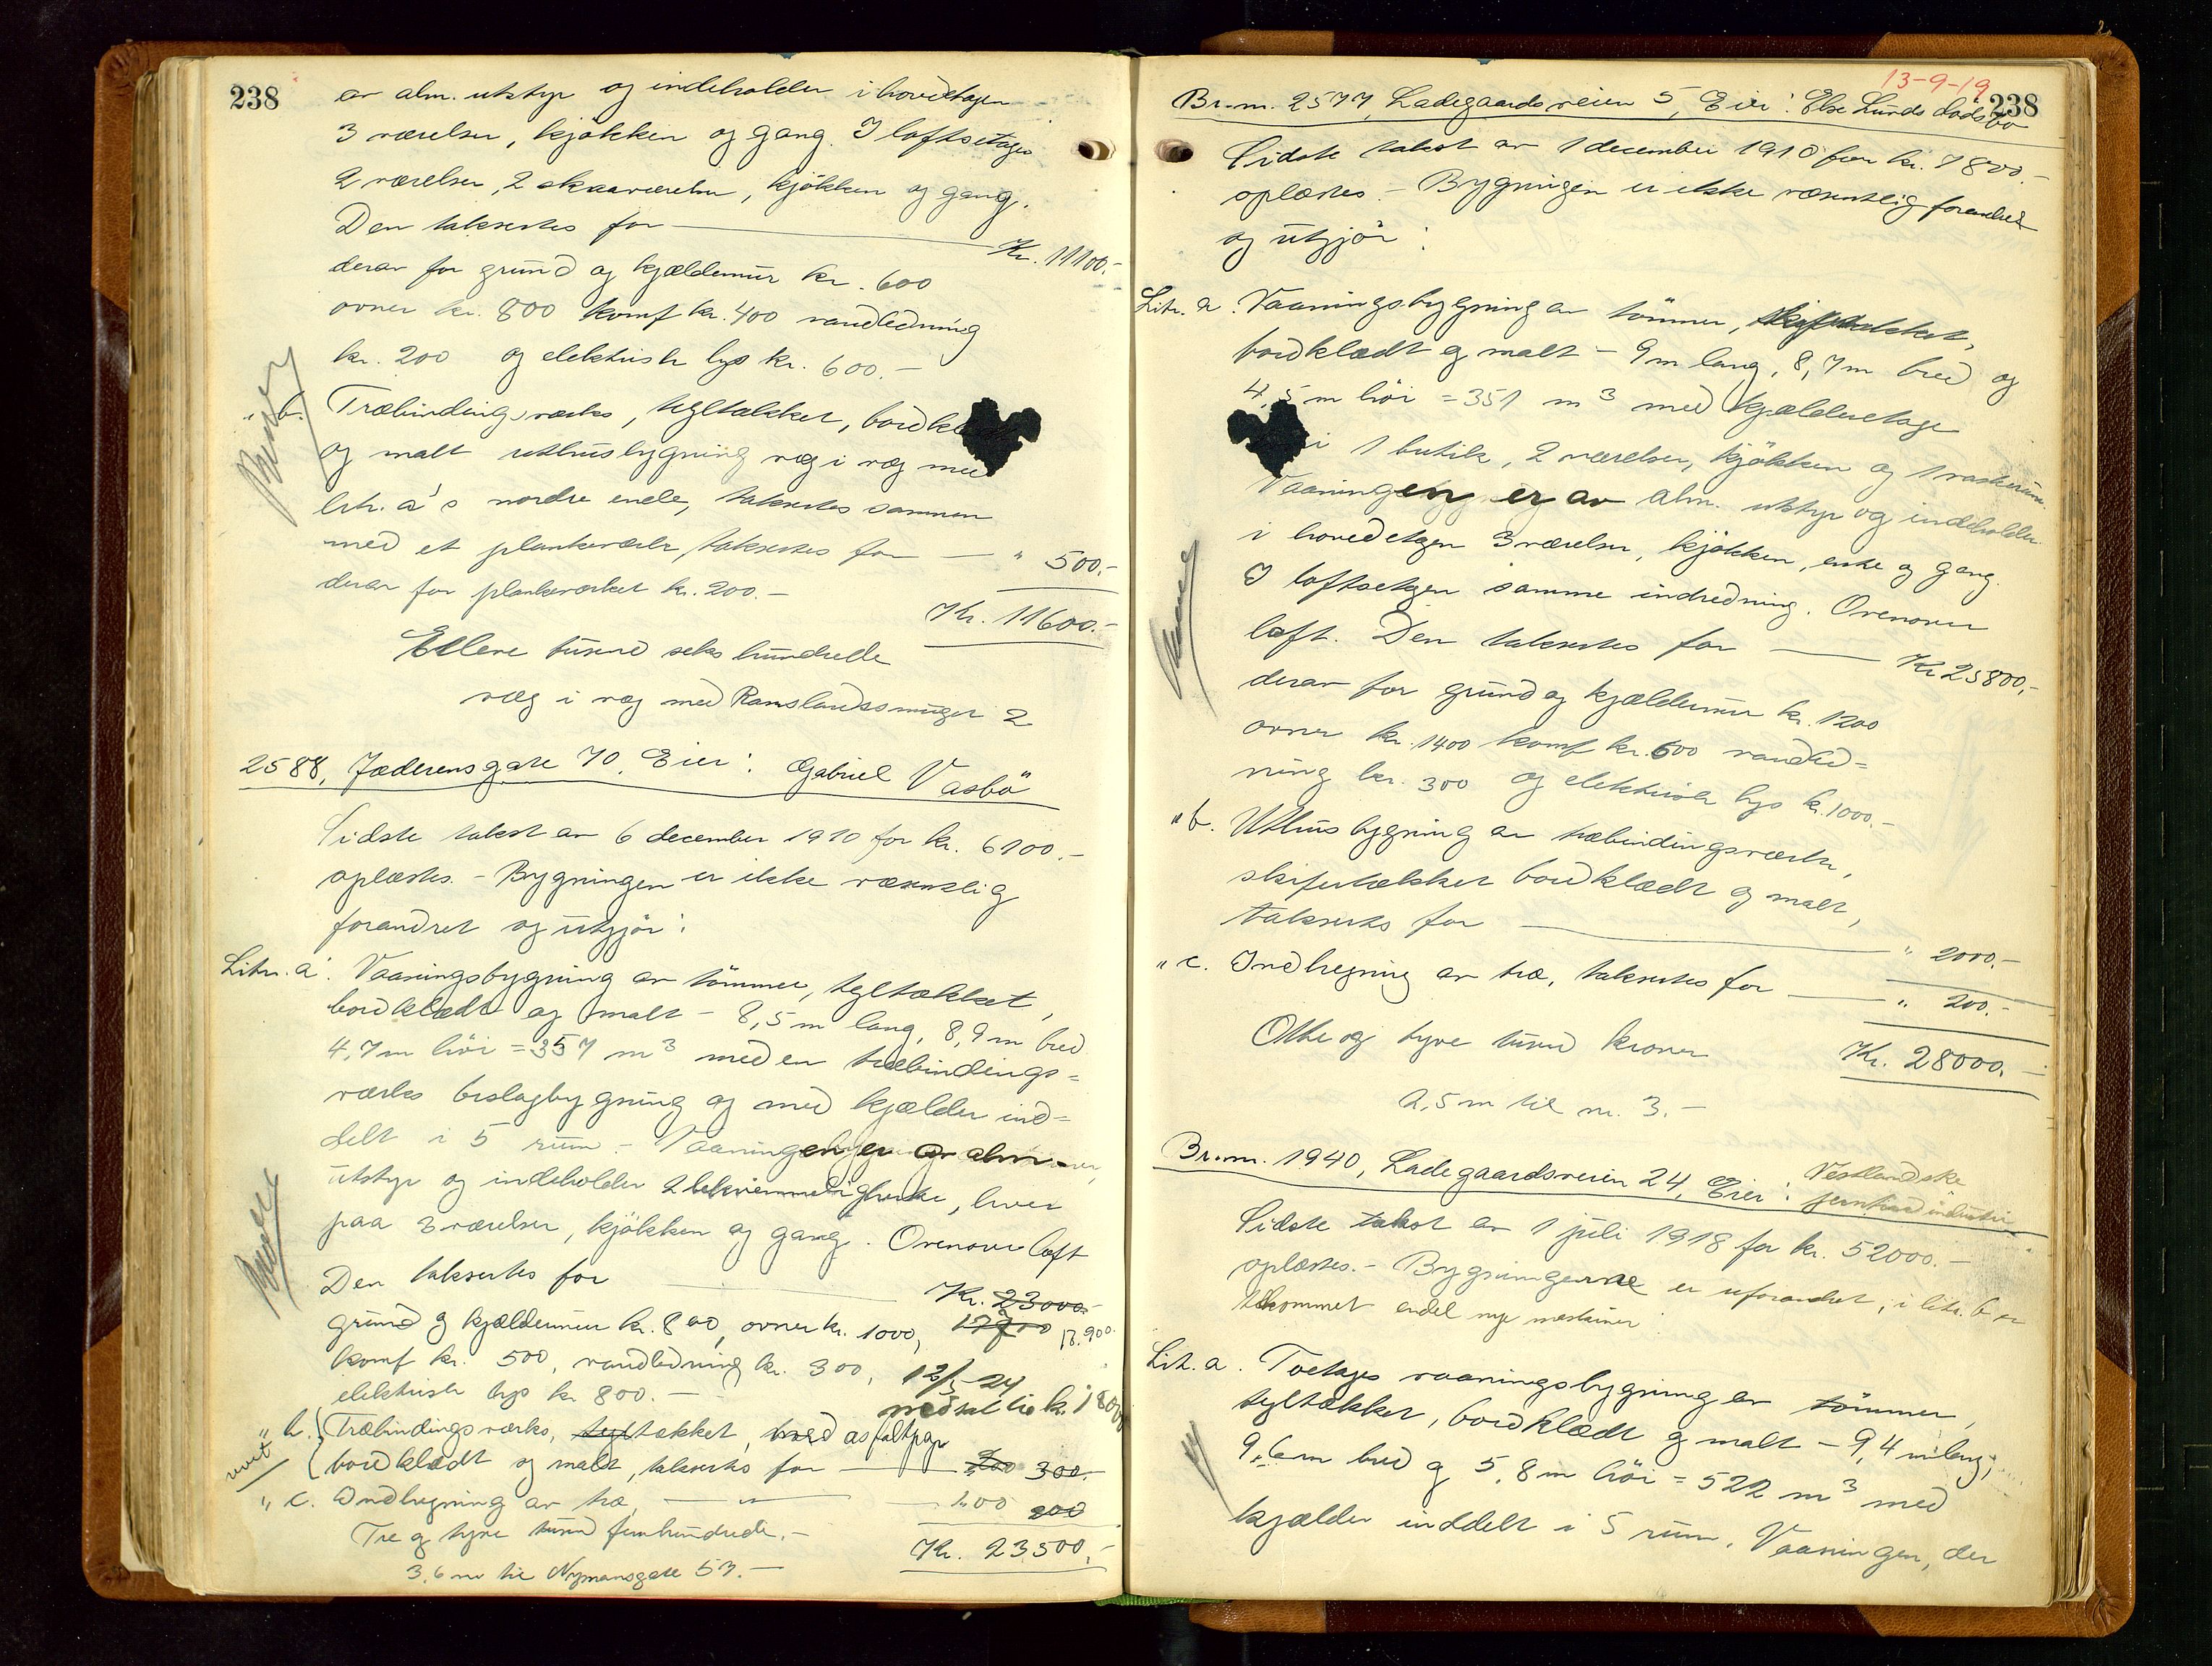 238
av alm. utstyr og indeholder i hovedetagen
3 værelser, kjökken og gang. I loftsetagen
2 værelser, 2 skraaværelser, kjökken og gang.
Den taksertes for — Kr. 11100.-
derav for grund og kjældermur kr. 600
ovner kr. 800 komf kr. 400 vandledning
kr. 200 og elektrisk lys kr. 600.-
" b. Træbindingsværks, tegltækket, bordkl
og malt uthusbygning væg i væg med
litr. a's nordre ende, taksertes sammen
med et plankeværk, taksertes for — " 500.-
derav for plankeværket kr. 200.-
Kr. 11600.-
Elleve tusend seks hundrede
væg i væg med Ramslandssmuget 2
2588, Jæderensgate 70. Eier: Gabriel Vasbö
Sidste takst av 6 december 1910 for kr. 6100.-
oplæstes. - Bygningen er ikke væsentlig
forandret og utgjör:
Litr. a. Vaaningsbygning av tömmer, tegltækket,
bordklædt og malt - 8,5 m lang, 8,9 m bred
4,7 m höi = 357 m³ med en træbindings=
værks beslagbygning og med kjælder ind=
delt i 5 rum - Vaaningen er av alm.
utstyr og indeholder 2 bekvemmeligheter, hver
paa 3 værelser, kjökken og gang. Ovenover loft
Den taksertes for — Kr. 23000.-
grund og kjældermur kr. 800, ovner kr. 1000, 18.900.
komf kr. 500, vandledning kr. 300, 12/5-24
elektrisk lys kr. 800.- nedsat til kr.
" b. Træbindingsværks, tegltækket, med asfaltpap
bordklædt og malt, taksertes for — 300.-
" c. Indhegning av træ, — " — 100 200
Tre og tyve tusend femhundrede.-
Kr. 23500.-
3,6 m til Nymansgate 53.-
13-9-19
238
Br.nr. 2577, Ladegaardsveien 5, Eier: Else Lunds dödsbo
Sidste takst av 1 december 1910 for kr. 7800.-
oplæstes - Bygningen er ikke væsentlig forandret
og utgjör:
Litr. a. Vaaningsbygning av tömmer, skifertækket,
bordklædt og malt - 9 m lang, 8,7 m bred og
4,5 m höi = 351 m³ med kjælderetage
i 1 butik, 2 værelser, kjökken og 1 vaskerum.
Vaaningen er av alm. utstyr og indeholder
i hovedetagen 3 værelser, kjökken, entre og gang.
I loftsetagen samme indredning. Ovenover
loft. Den taksertes for — Kr 25800,-
derav for grund og kjældermur kr. 1200
ovner kr. 1400 komf kr. 600 vandled=
ning kr. 300 og elektrisk lys kr. 1000.-
" b. Uthusbygning av træbindingsværk,
skifertækket bordklædt og malt,
taksertes for — " 2000.-
" c. Indhegning av træ, taksertes for — " 200.-
Otte og tyve tusend kroner Kr. 28000.-
2,5 m til nr. 3.-
Br.nr. 1940, Ladegaardsveien 24, Eier: Vestlandske
industri
Sidste takst av 1 juli 1918 for kr. 52000.-
oplæstes. - Bygningerne er uforandret, i litr. b er
tilkommet endel nye maskiner
Litr. a. Toetages vaaningsbygning av tömmer,
tegltækket, bordklædt og malt - 9,4 m lang,
9,6 m bred og 5,8 m höi = 522 m³ med
kjælder inddelt i 5 rum. Vaaningen, der